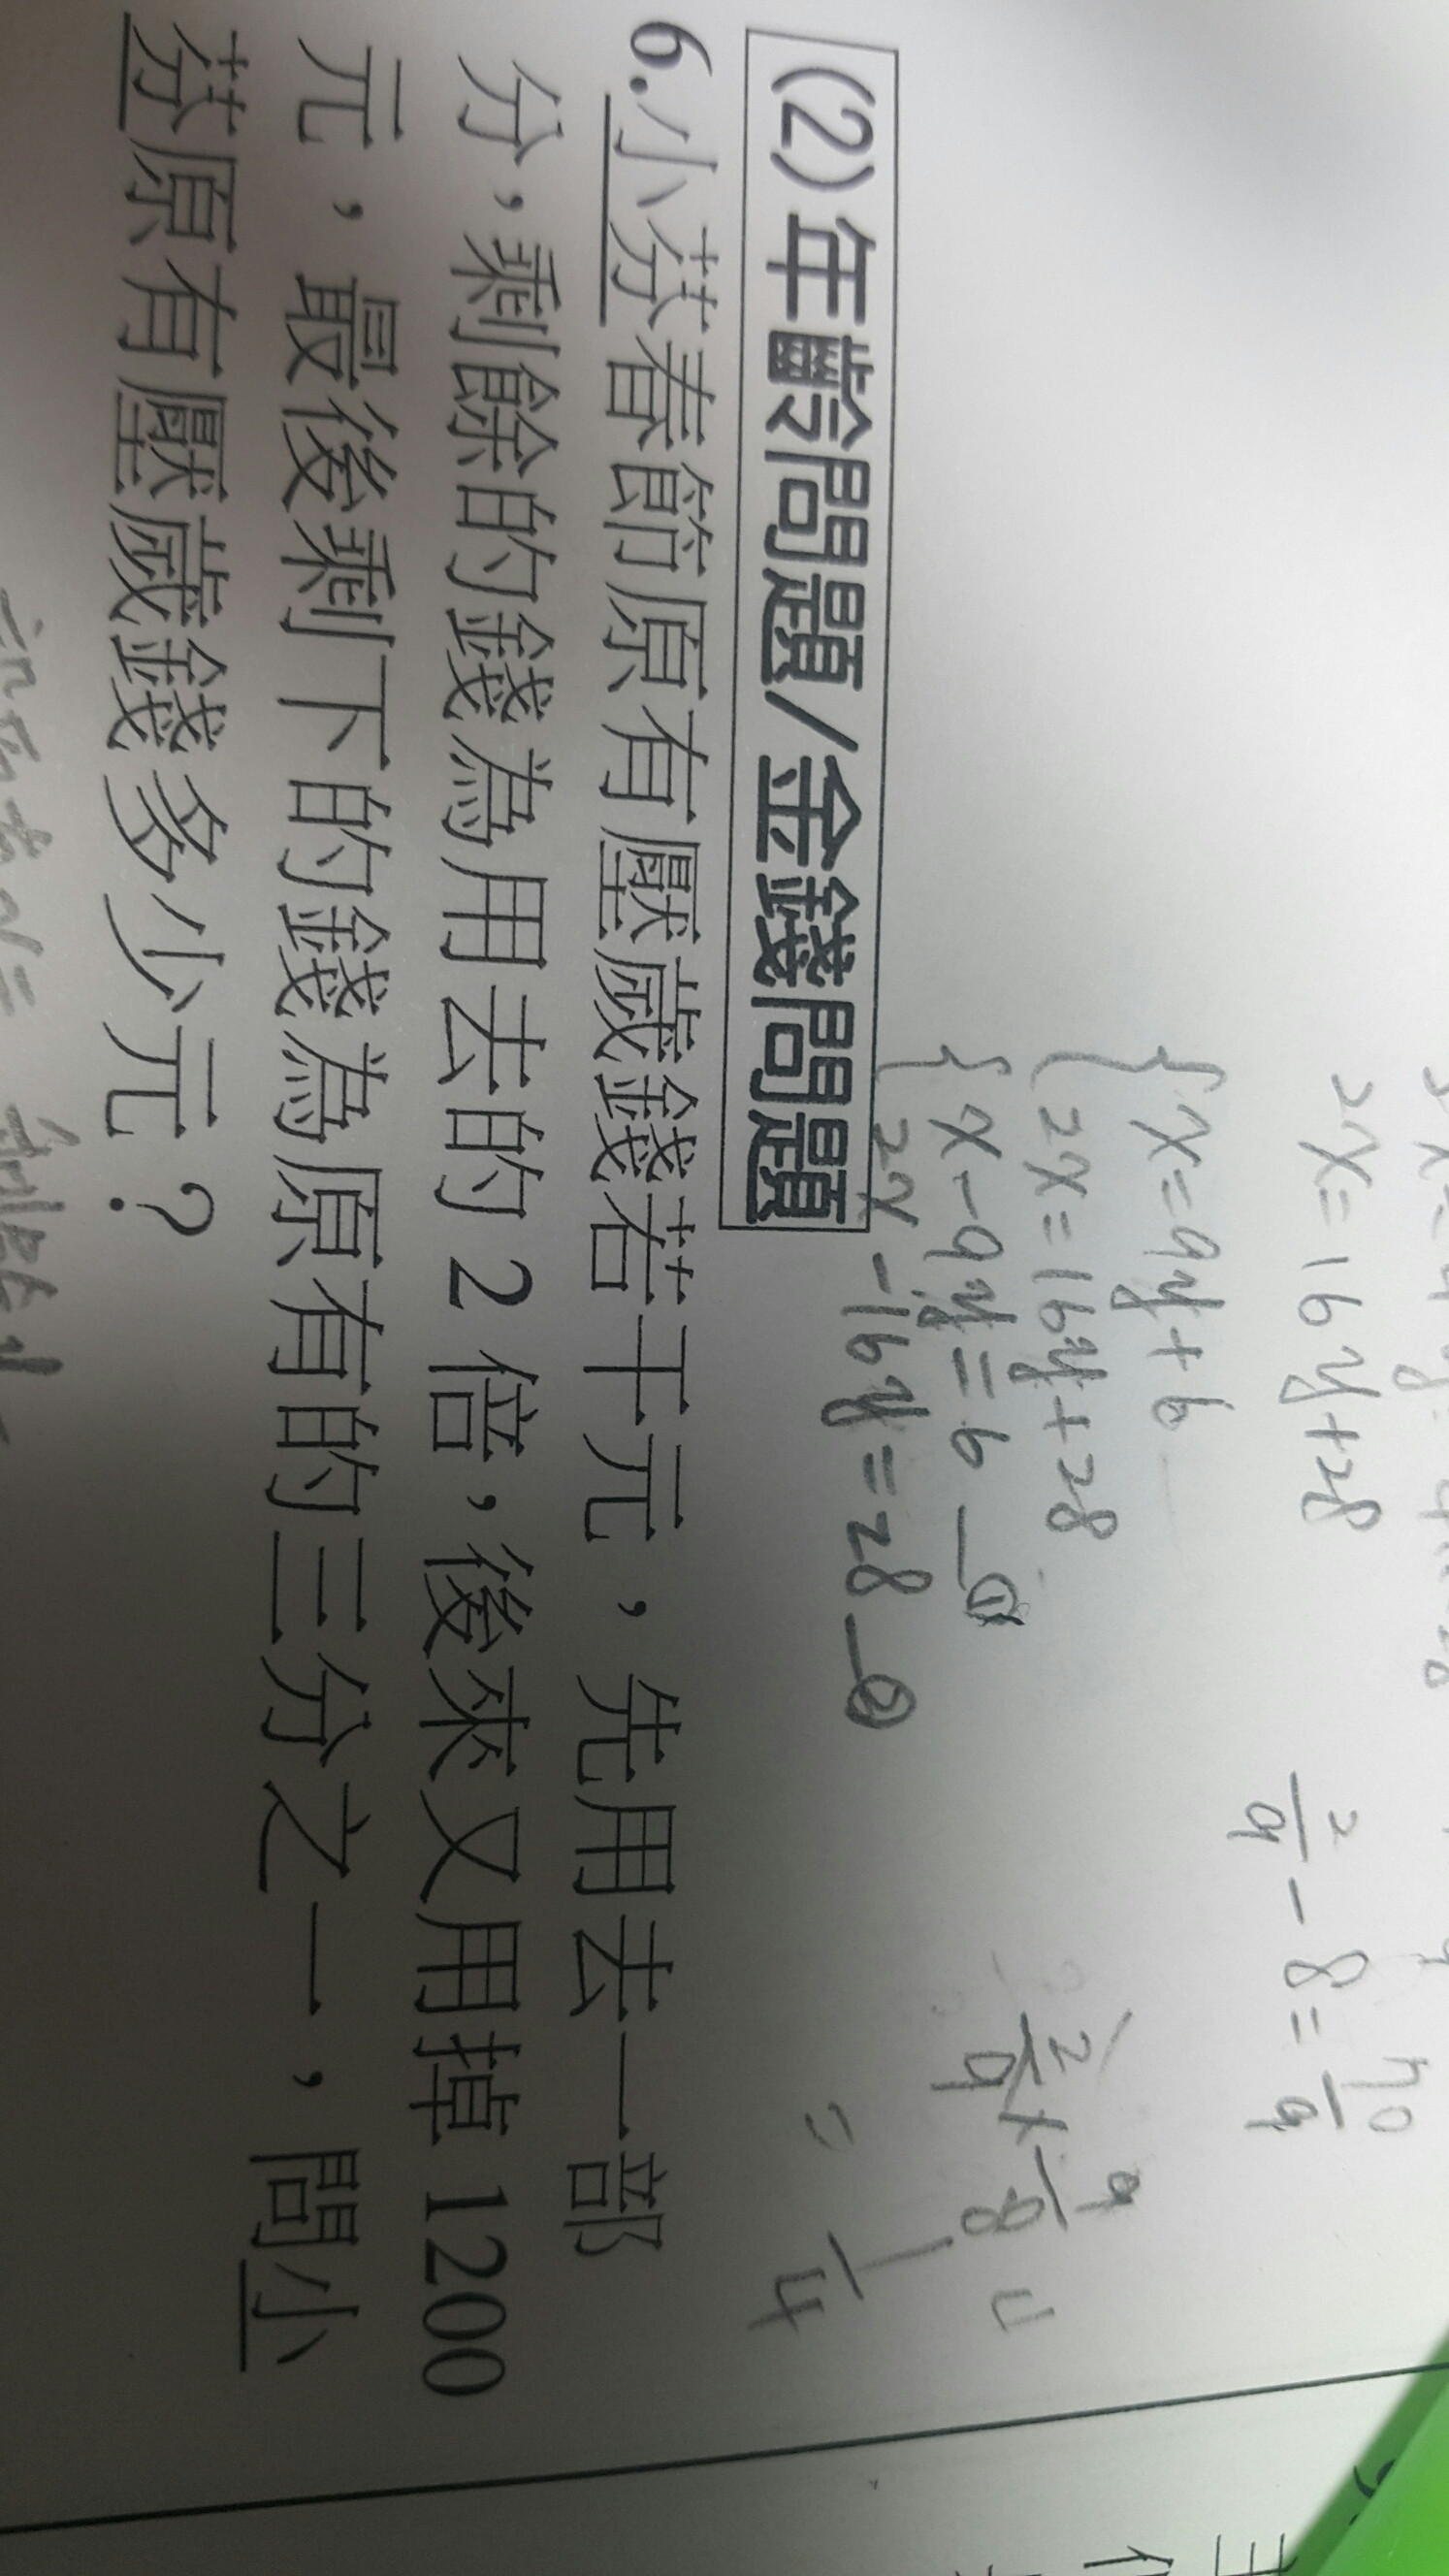 2x=16y+28
2/9-8=
{x=9y+6
2x=16y+28
{x-9y=6—①
2x-16y=28—②
2/9×9/8
=1/4
(2)年齡問題/金錢問題
6.小芬春節原有壓歲錢若干元，先用去一部
分，剩餘的錢為用去的2倍，後來又用掉1200
元，最後剩下的錢為原有的三分之一，問小
芬原有壓歲錢多少元？